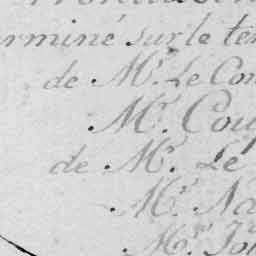 erminé sur le ter
de Mr. Le Con
Mr. Cou
de Mr. Le
Mr. Na
Mr. Jo